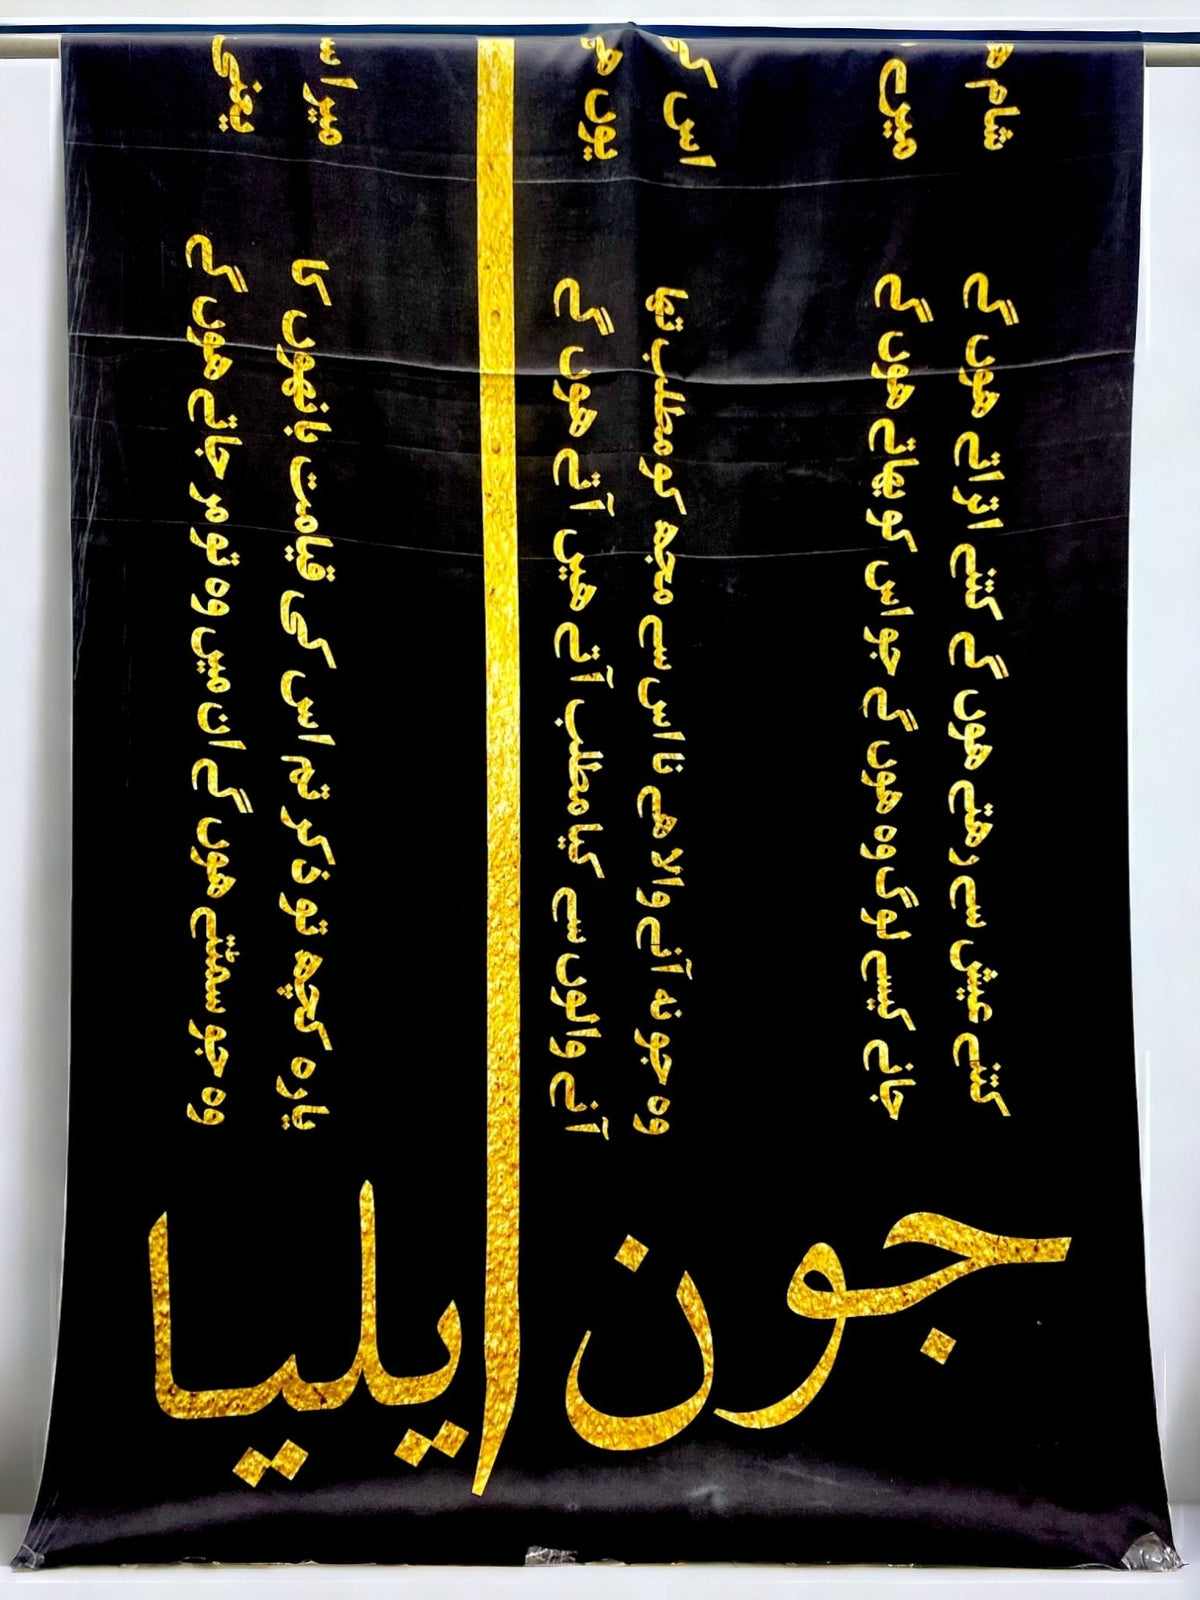 کتنے عیش سے رھتے ھوں گے کتنے اتراتے ھوں گے
جانے کیسے لوگ وہ ھوں گے جو اس کو بھاتے ھوں گے
شام
میں
وہ جو نہ آنے والا ھے نا اس سے مجھ کو مطلب تھا
آنے والوں سے کیا مطلب آتے ھیں آتے ھوں گے
اس کی
یوں
یارہ کچھ تو ذکر تم اس کی قیامت بانھوں کا
وہ جو سمٹتے ھوں گے ان میں وہ تو مر جاتے ھوں گے
میرا
یعنی
جون ایلیا